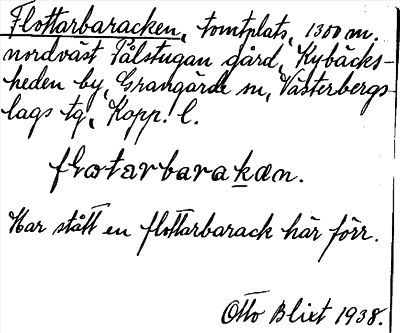 Flottarbaracken, tomtplats, 1300 m.
nordväst Pålstugan gård, Kybäcks-
heden by, Grangärde sn, Västerbergs-
lags tg, Kopp. l.
flotarbarakən.
Har stått en flottarbarack här förr.
Otto Blixt 1938.